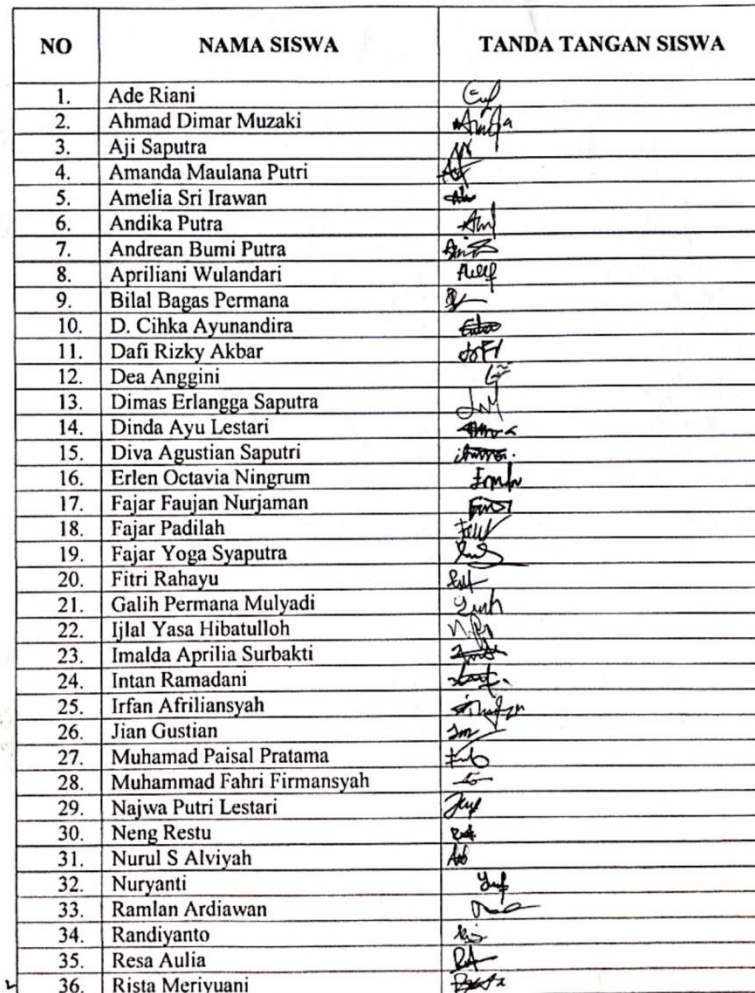 NO NAMA SISWA TANDA TANGAN SISWA
1. Ade Riani
2. Ahmad Dimar Muzaki
3. Aji Saputra
4. Amanda Maulana Putri
5. Amelia Sri Irawan
6. Andika Putra
7. Andrean Bumi Putra
8. Apriliani Wulandari
9. Bilal Bagas Permana
10. D. Cihka Ayunandira
11. Dafi Rizky Akbar
12. Dea Anggini
13. Dimas Erlangga Saputra
14. Dinda Ayu Lestari
15. Diva Agustian Saputri
16. Erlen Octavia Ningrum
17. Fajar Faujan Nurjaman
18. Fajar Padilah
19. Fajar Yoga Syaputra
20. Fitri Rahayu
21. Galih Permana Mulyadi
22. Ijlal Yasa Hibatulloh
23. Imalda Aprilia Surbakti
24. Intan Ramadani
25. Irfan Afriliansyah
26. Jian Gustian
27. Muhamad Paisal Pratama
28. Muhammad Fahri Firmansyah
29. Najwa Putri Lestari
30. Neng Restu
31. Nurul S Alviyah
32. Nuryanti
33. Ramlan Ardiawan
34. Randiyanto
35. Resa Aulia
36. Rista Meriyuani